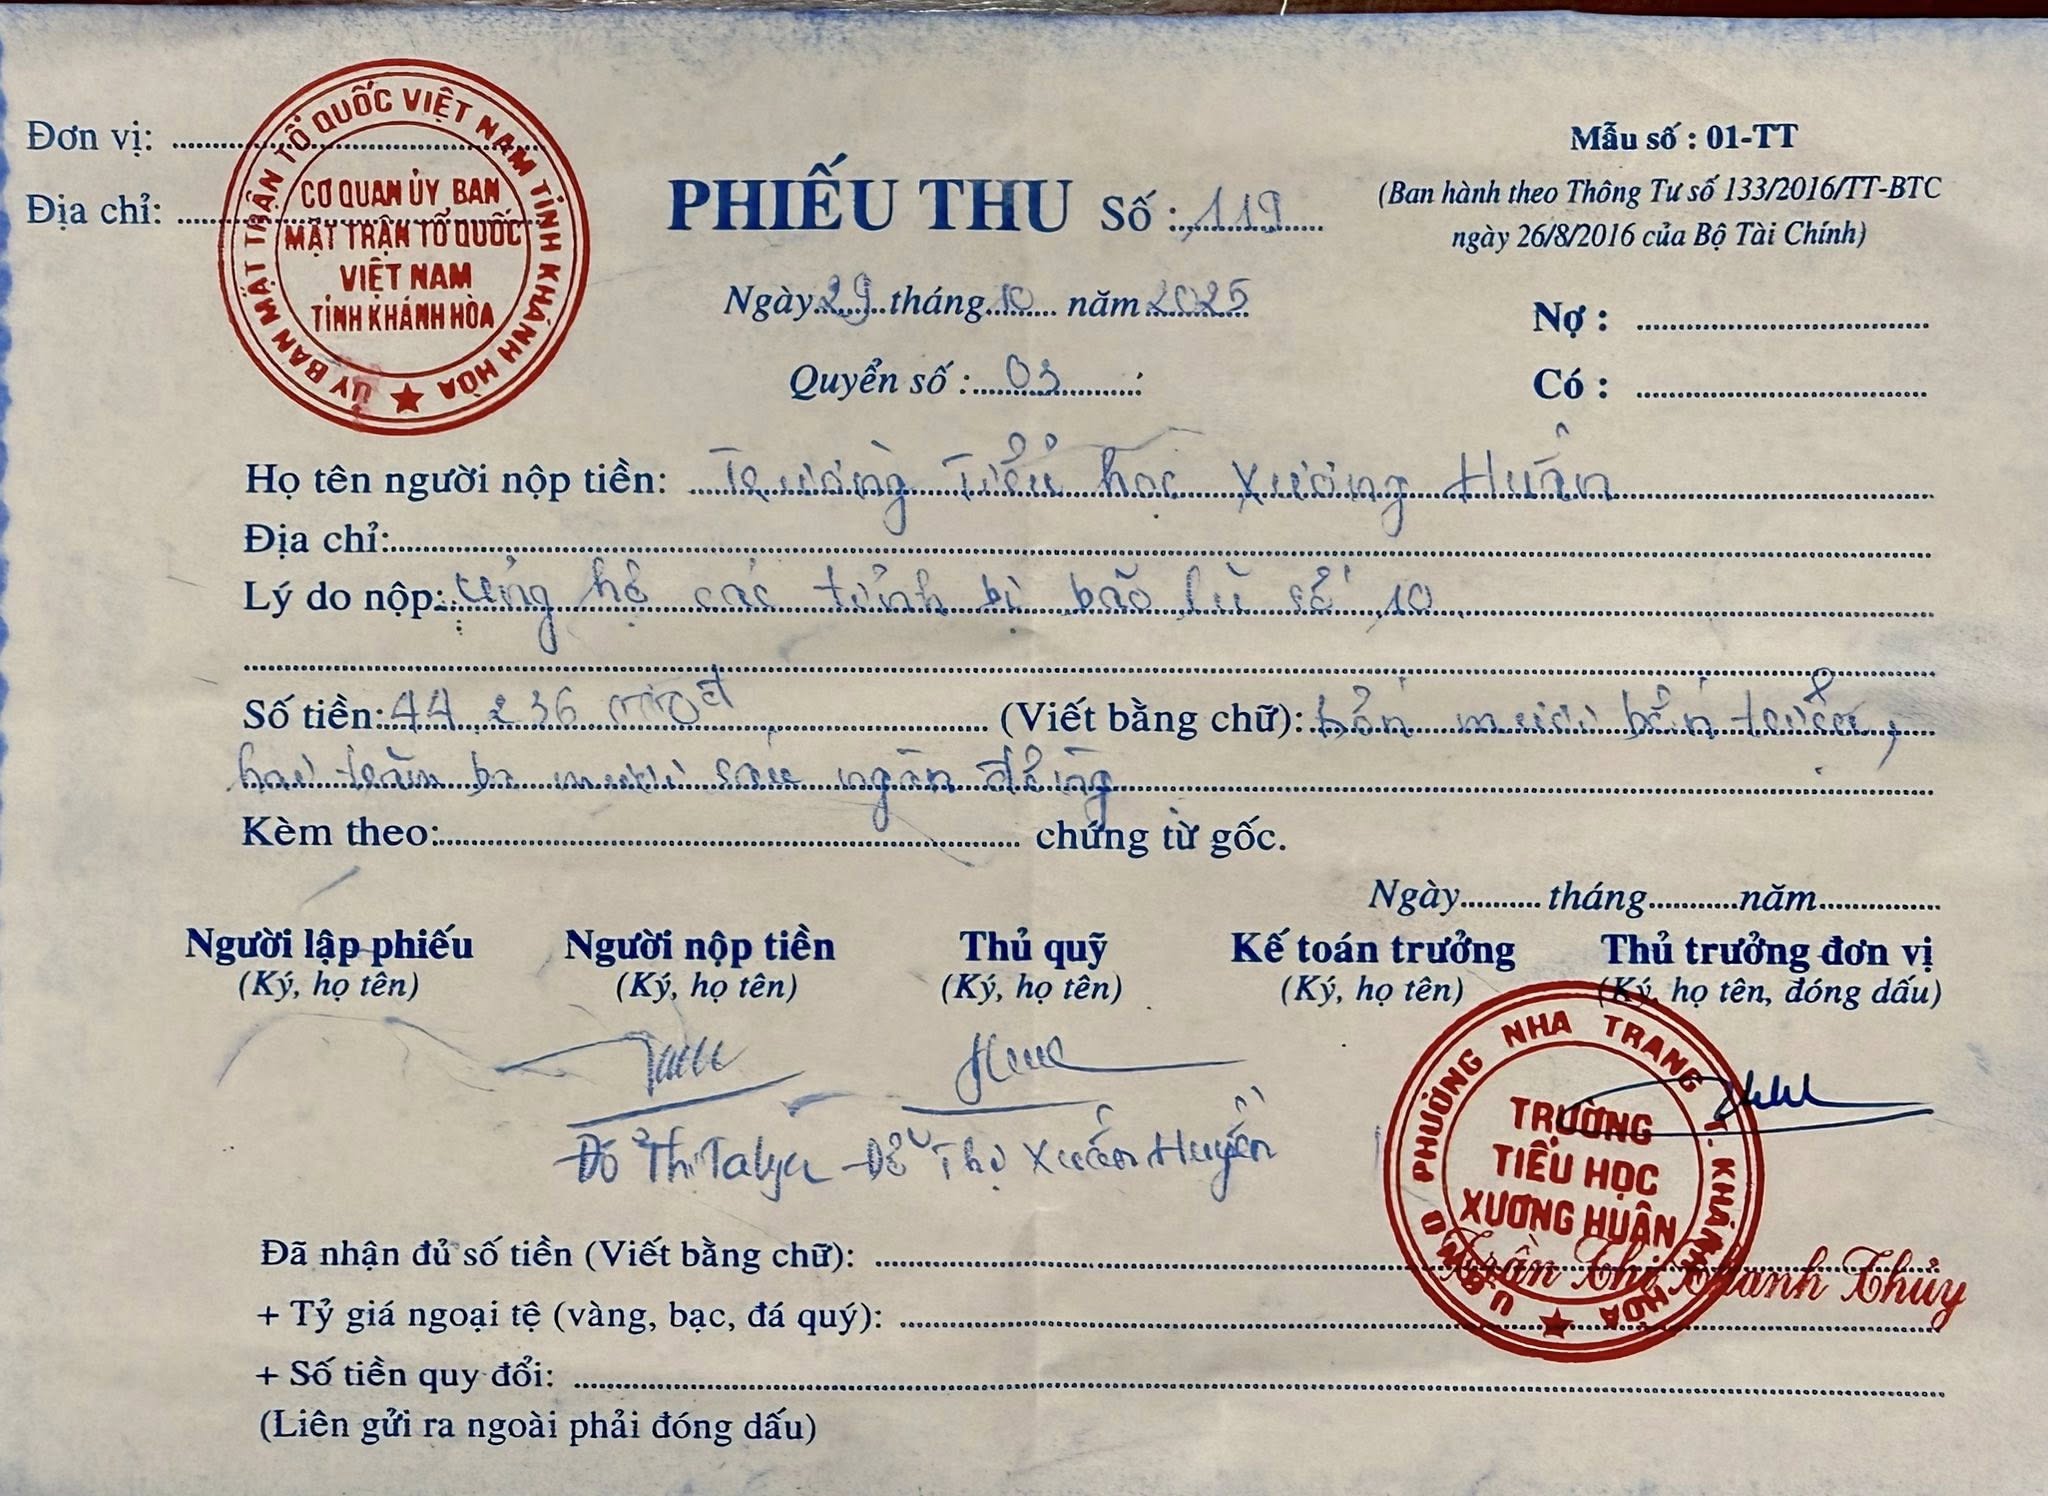 ỦY BAN MẶT TRẬN TỔ QUỐC VIỆT NAM TỈNH KHÁNH HÒA
CƠ QUAN ỦY BAN
MẶT TRẬN TỔ QUỐC
VIỆT NAM
TỈNH KHÁNH HÒA
Đơn vị:
Địa chỉ:
PHIẾU THU Số : 119
Ngày 29 tháng 10 năm 2025
Quyển số : 03
Mẫu số : 01-TT
(Ban hành theo Thông Tư số 133/2016/TT-BTC
ngày 26/8/2016 của Bộ Tài Chính)
Nợ :
Có :
Họ tên người nộp tiền: Trường Tiểu học Xương Huân
Địa chỉ:
Lý do nộp: Ủng hộ các tỉnh bị bão lũ số 10
Số tiền: 44 236 000đ (Viết bằng chữ): bốn mươi bốn triệu,
hai trăm ba mươi sáu ngàn đồng
Kèm theo: chứng từ gốc.
Ngày tháng năm
Người lập phiếu Người nộp tiền Thủ quỹ Kế toán trưởng Thủ trưởng đơn vị
(Ký, họ tên) (Ký, họ tên) (Ký, họ tên) (Ký, họ tên) (Ký, họ tên, đóng dấu)
Đỗ Thị Đỗ Thị Xuân Huyền
U.B.N.D PHƯỜNG NHA TRANG T. KHÁNH HÒA
TRƯỜNG
TIỂU HỌC
XƯƠNG HUÂN
Trần Thị Thanh Thủy
Đã nhận đủ số tiền (Viết bằng chữ):
+ Tỷ giá ngoại tệ (vàng, bạc, đá quý):
+ Số tiền quy đổi:
(Liên gửi ra ngoài phải đóng dấu)